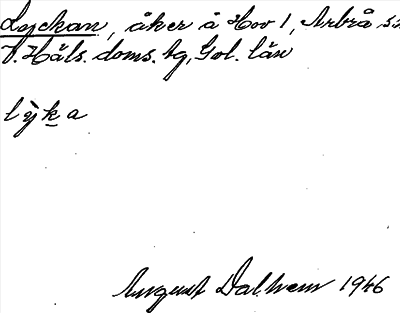 Lyckan, åker å Hov 1, Arbrå sn
V. Häls. doms. tg, Gvl. län
lỳka
August Dalhem 1946